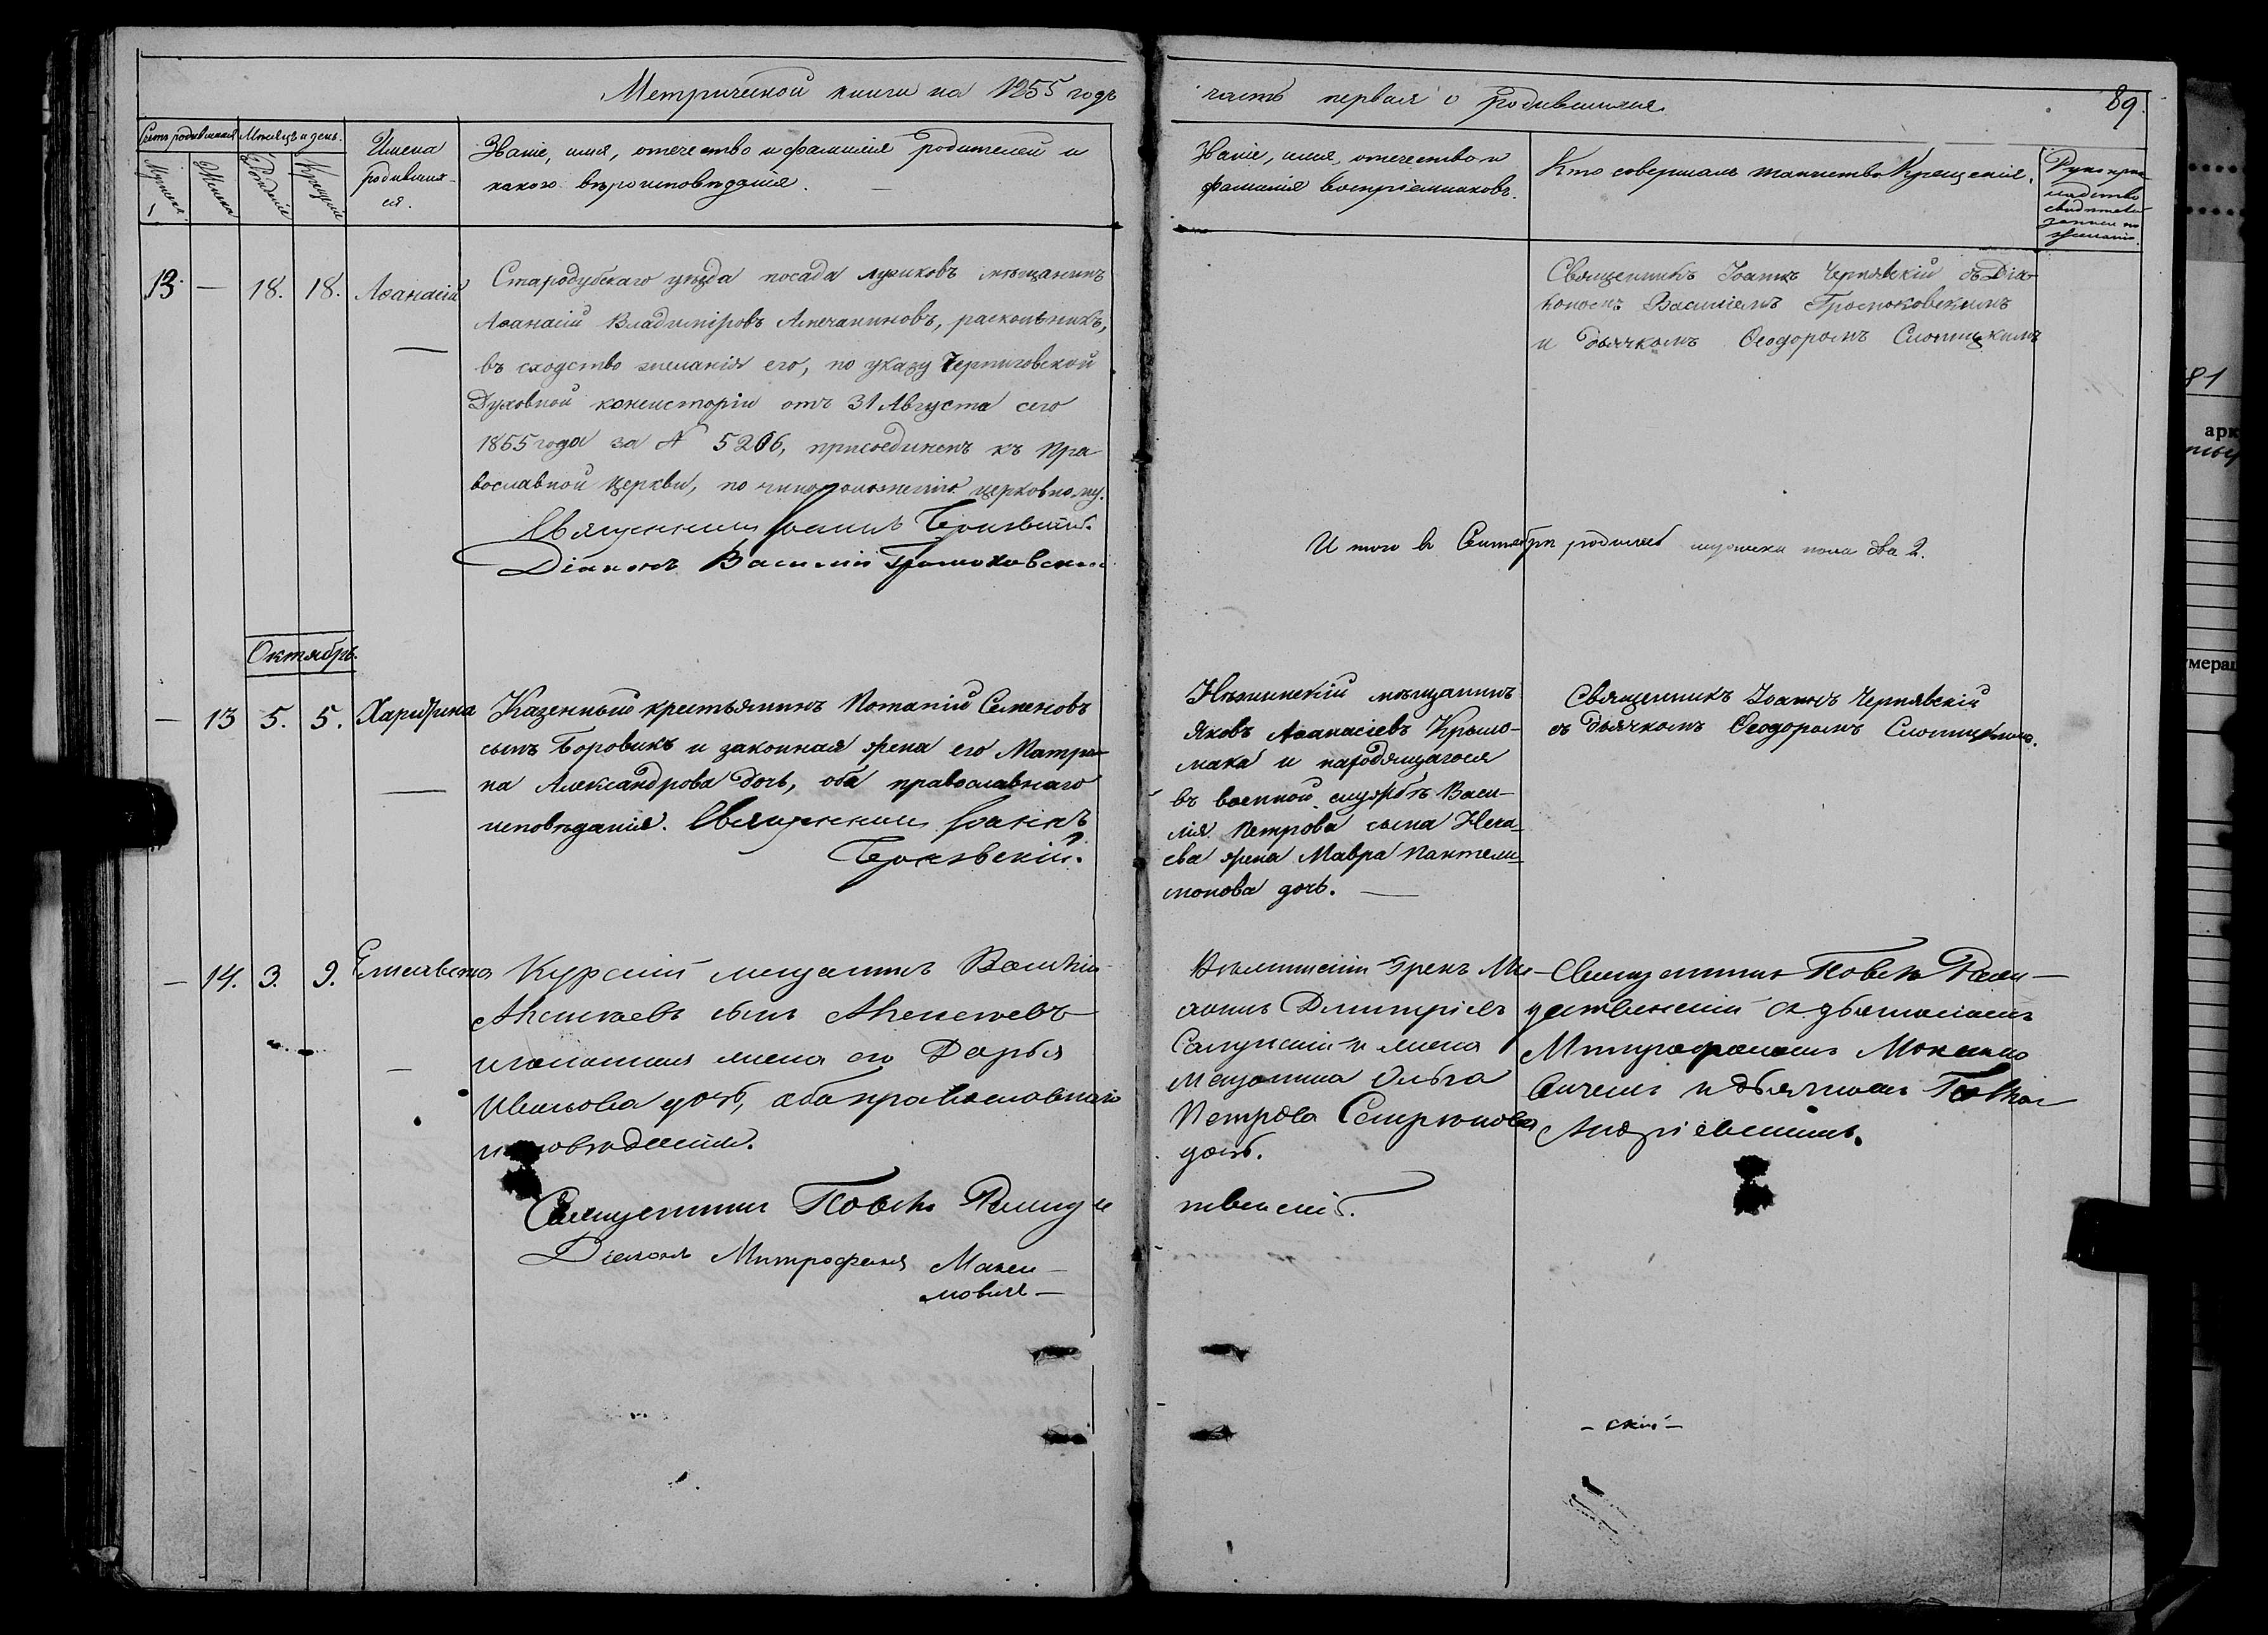 Метрической книги на 1855 годъ
часть первая о родившихся.
89.
Счетъ родившихся
Мѣсяцъ и день.
Имена
родивших-
ся.
Званіе, имя, отечество и фамилія родителей и
какого вѣроисповѣданія.
Званіе, имя, отечество и
фамилія воспріемниковъ.
Кто совершалъ таинство Крещенія.
Рукопри-
кладство
свидѣтелей
записи по
желанію.
Мужеска
Женска
Рожденія
Крещенія
13. — 18. 18. Аѳанасій
Стародубскаго уѣзда посада Лужковъ мѣщанинъ
Аѳанасій Владиміровъ раскольникъ,
въ сходство желанія его, по указу Черниговской
Духовной консисторіи отъ 31 Августа сего
1855 года за № 5206, присоединенъ къ Пра-
вославной Церкви, по чиноположенію церковному.
Священникъ Іоаннъ Чернявскій.
Діаконъ Василій Громоковскій
Священникъ Іоаннъ Чернявскій съ Діа-
кономъ Василіемъ Громоковскимъ
и дьячкомъ Ѳеодоромъ Слотицкимъ
Итого въ Сентябрѣ родилось мужеска пола два 2.
Октябрь.
— 13 5. 5. Харитина
Казенный крестьянинъ Потапій Семеновъ
сынъ Боровикъ и законная жена его Матро-
на Александрова дочь, оба православнаго
исповѣданія. Священникъ Іоаннъ
Чернявскій.
Нѣжинскій мѣщанинъ
Яковъ Аѳанасіевъ Крыло-
мака и находящагося
въ военной службѣ Васи-
лія Петрова сына Неча-
ева жена Мавра Пантели-
монова дочь. —
Священникъ Іоаннъ Чернявскій
съ дьячкомъ Ѳеодоромъ Слотицкимъ.
— 14. 3. 9. Елисавета
Курскій мещанинъ Василій
сынъ
и законная жена его Дарья
Иванова дочь, оба православнаго
исповѣданія.
Священникъ Павелъ Рожде
Діаконъ Митрофанъ Макси-
мовичъ —
Нѣжинскій Грекъ Ми-
хаилъ Дмитріевъ
и жена
Мещанина Ольга
Петрова
дочь.
твенскій.
Священникъ Павелъ Рож-
дественскій съ діакономъ
Митрофаномъ Максимо
вичемъ и дьячкомъ Павлом
Андріевскимъ.
— скій —
81